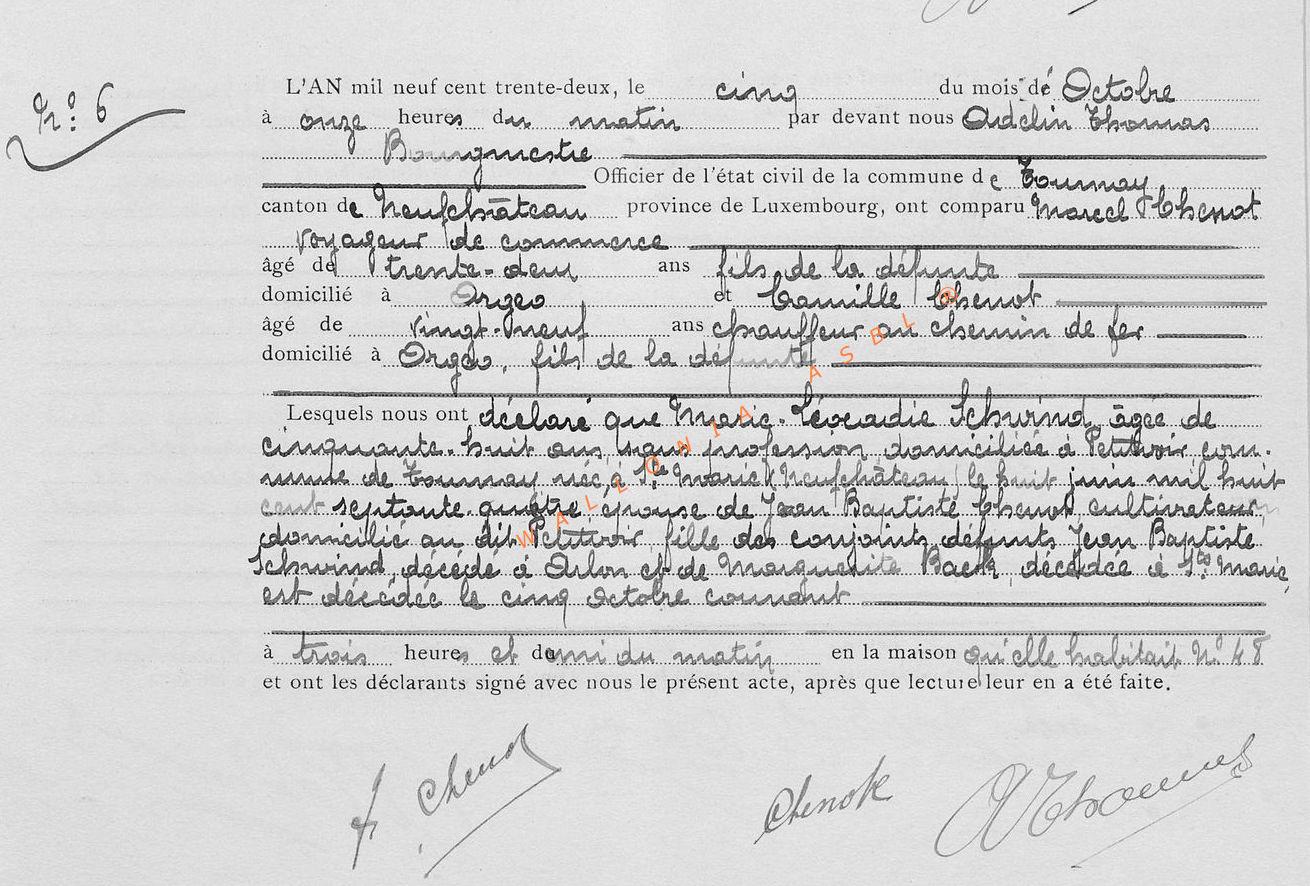 N.º 6
L'AN mil neuf cent trente-deux, le cinq du mois de Octobre
à onze heures du matin par devant nous Adelin Thomas
Bourgmestre
Officier de l'état civil de la commune de Tournay
canton de Neufchâteau province de Luxembourg, ont comparu Marcel Chenot
voyageur de commerce
âgé de trente-deux ans fils de la défunte
domicilié à Orgeo et Camille Chenot
âgé de vingt-neuf ans chauffeur au chemin de fer
domicilié à Orgeo, fils de la défunte
Lesquels nous ont déclaré que Marie-Léocadie Schwind, âgée de
cinquante-huit ans, sans profession domiciliée à Petitvoir com-
mune de Tournay née à Ste Marie (Neufchâteau) le huit juin mil huit
cent septante-quatre épouse de Jean Baptiste Chenot, cultivateur
domicilié au dit Petitvoir, fille des conjoints défunts Jean Baptiste
Schwind, décédé à Arlon et de Marguerite décédée à Ste Marie,
est décédée le cinq Octobre courant
à trois heures et demi du matin en la maison qu'elle habitait N.º 48
et ont les déclarants signé avec nous le présent acte, après que lecture leur en a été faite.
Chenot Chenot AThomas
WALLONIA ASBL ®